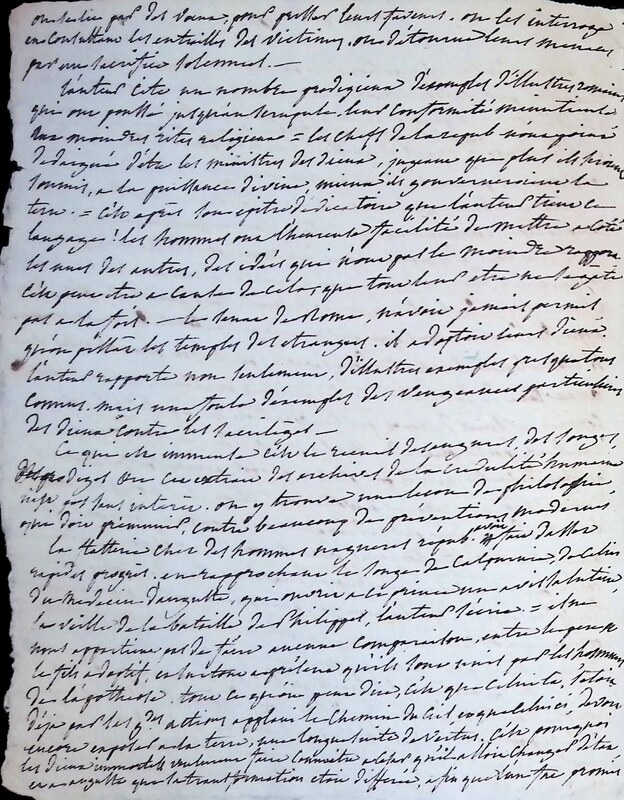 par des voeux, pour leurs faveurs. on les interroge
en consultant les entrailles des victimes, on détourne leurs menaces
par un sacrifice solemnel. —
L'auteur cite un nombre prodigieux d'exemples d'illustres romains
qui ont poussé jusqu'au scrupule, leur conformité
aux moindres rites religieux = les chefs de la repub n'ont point
dedaigné d'être les ministres des dieux, jugeant que plus ils seroient
soumis, a la puissance divine, mieux ils gouverneroient la
terre. = c'est après son epitre dedicatoire que l'auteur tient ce
langage! les hommes ont l'heureuse facilité de mettre a coté
les unes des autres, des idées qui n'ont pas le moindre rapport
c'est peut etre a cause de cela, que tout leur etre ne se gâte
pas a la fois. — le senat de Rome, n'avoit jamais permis
qu'on pillât les temples des etrangers. il adoptoit leurs dieux
l'auteur rapporte non seulement, d'illustres exemples presque tous
connus. mais une foule d'exemples des vengeances particulières
des dieux contre les sacrilèges. —
Ce qui est immense c'est le recueil des augures, des songes
des prodiges cet extrait des archives de la credulité humaine
n'est pas sans interêt. on y trouve une leçon de philosophie
qui doit premunir, contre beaucoup de préventions modernes
la flatterie chez des hommes nagueres répub. avoit fait d'assez
rapides progrès. en rapprochant le songe de Calpurnie, de celui
du médecin d'auguste, qui ouvrit a ce prince un avis salutaire
la veille de la bataille de Philippes, l'auteur = il ne
nous appartient pas de faire aucune comparaison, entre le pere et
le fils adoptif, surtout a présent qu'ils sont unis par les honneurs
de l'apothéose. tout ce qu'on peut dire, c'est que celui la, s'etoit
déjà par les gdes actions applani le chemin du ciel et que celui ci, devoit
encore exposer a la terre, une longue suite de vertus. c'est pourquoi
les dieux immortels voulurent faire connoitre a l'un qu'il alloit changer d'état
et a auguste que la transformation etoit differée, afin que l'un fut promis